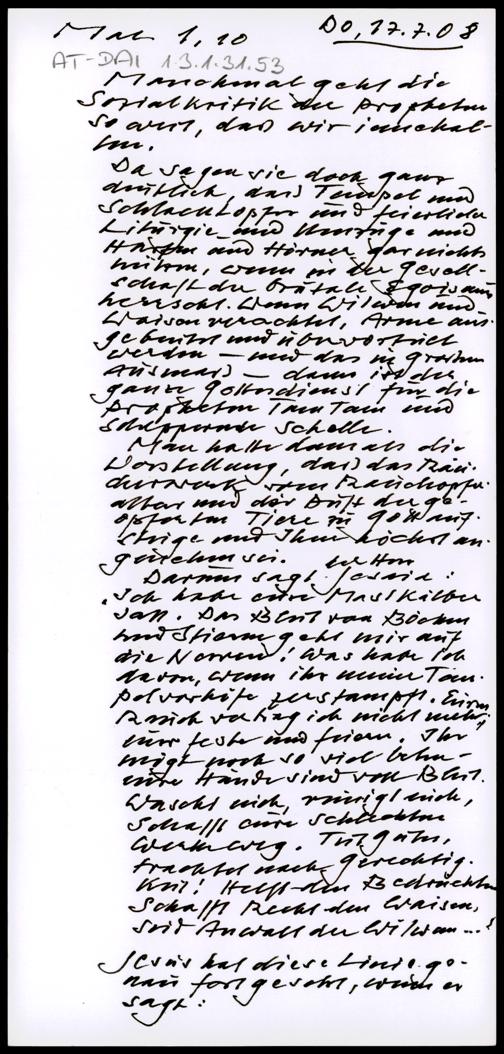 Mal 1,10
Do, 17.7.08
AT-DAI 1.3.1.31.53
Manchmal geht die
Sozialkritik der Propheten
so weit, daß wir innehal-
ten.
Da sagen sie doch ganz
deutlich, daß Tempel und
Schlachtopfer und feierliche
Liturgie und Umzüge und
Harfen und Hörner gar nichts
nützen, wenn in der Gesell-
schaft der brutale Egoismus
herrscht. Wenn Witwen und
Waisen verachtet, Arme aus-
gebeutet und übervorteilt
werden – und das in großem
Ausmaß – dann ist der
ganze Gottesdienst für die
Propheten Tam Tam und
schepperende Schelle.
Man hatte damals die
Vorstellung, daß das Räu-
cherwerk vom Rauchopfer-
altar und der Duft der ge-
opferten Tiere zu Gott auf-
steige und Ihm höchst an-
genehm sei.
Darum sagt Jesaia:
"Ich habe eure Mastkälber
satt. Das Blut von Böcken
und Stieren geht mir auf
die Nerven! Was habe ich
davon, wenn ihr meine Tem-
pelvorhöfe zerstampft. Euren
Rauch vertrag ich nicht mehr,
eure Feste und Feiern. Ihr
mögt noch so viel beten –
eure Hände sind voll Blut.
Wascht euch, reinigt euch,
schafft eure schlechten
Werke weg. Tut Gutes,
trachtet nach Gerechtig-
keit! Helft den Bedrückten
Schafft Recht den Waisen,
seid Anwalt der Witwen...!
Jesus hat diese Linie ge-
nau fortgesetzt, wenn er
sagt: